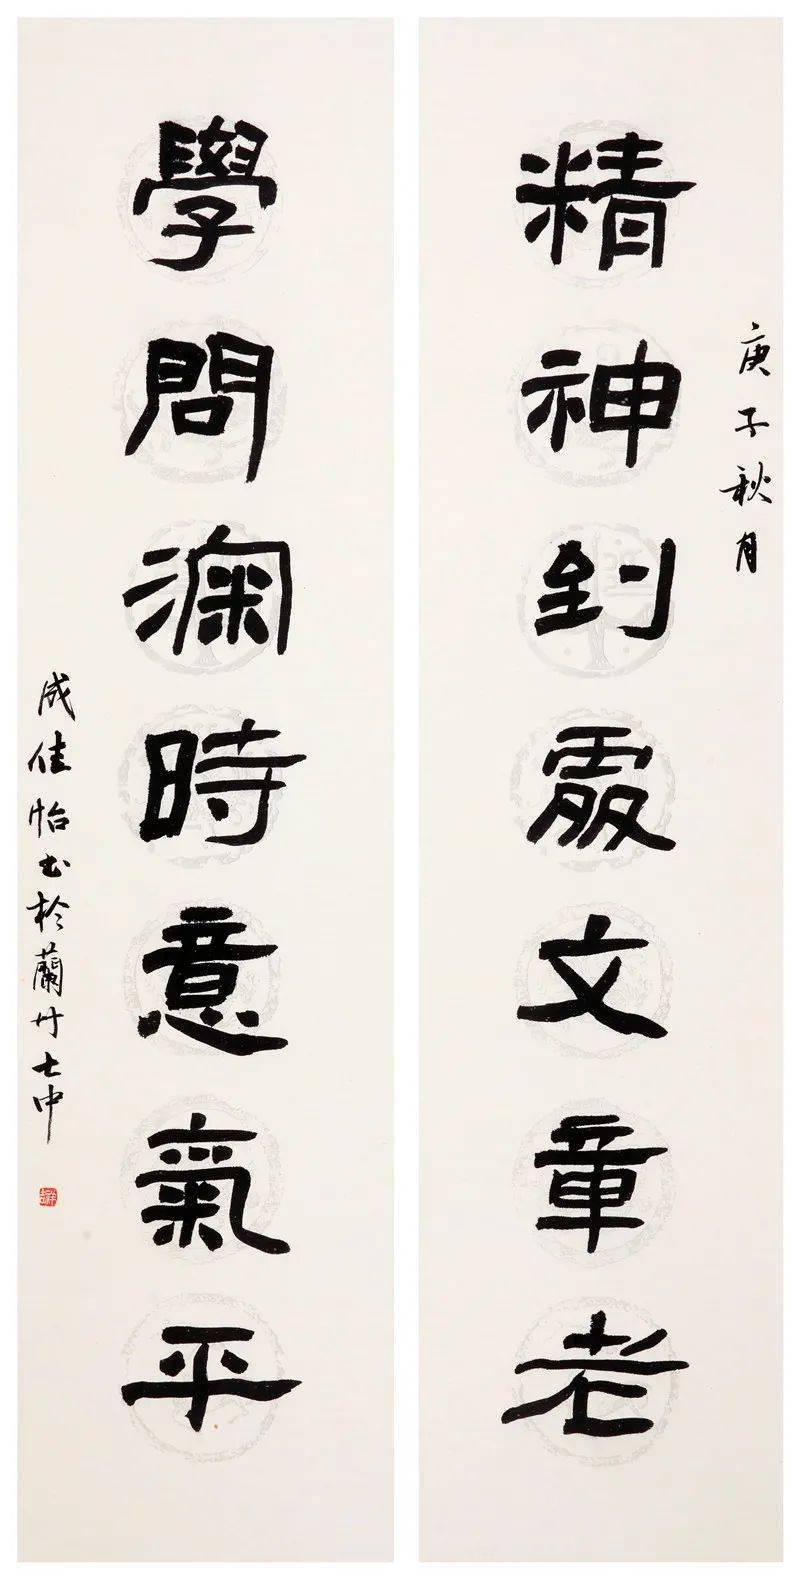 庚子秋月
精神到處文章老
學問深時意氣平
成佳怡书於蘭
中